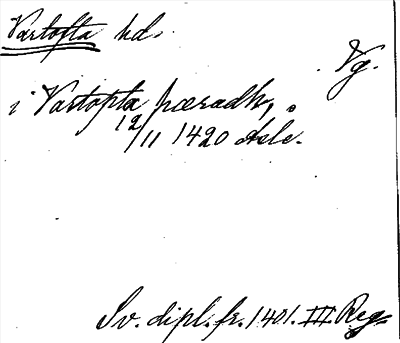 Vartofta hd.
Vg.
i Vartopta hæradh,
12/11 1420
Sv. dipl. fr. 1401. III. Reg.